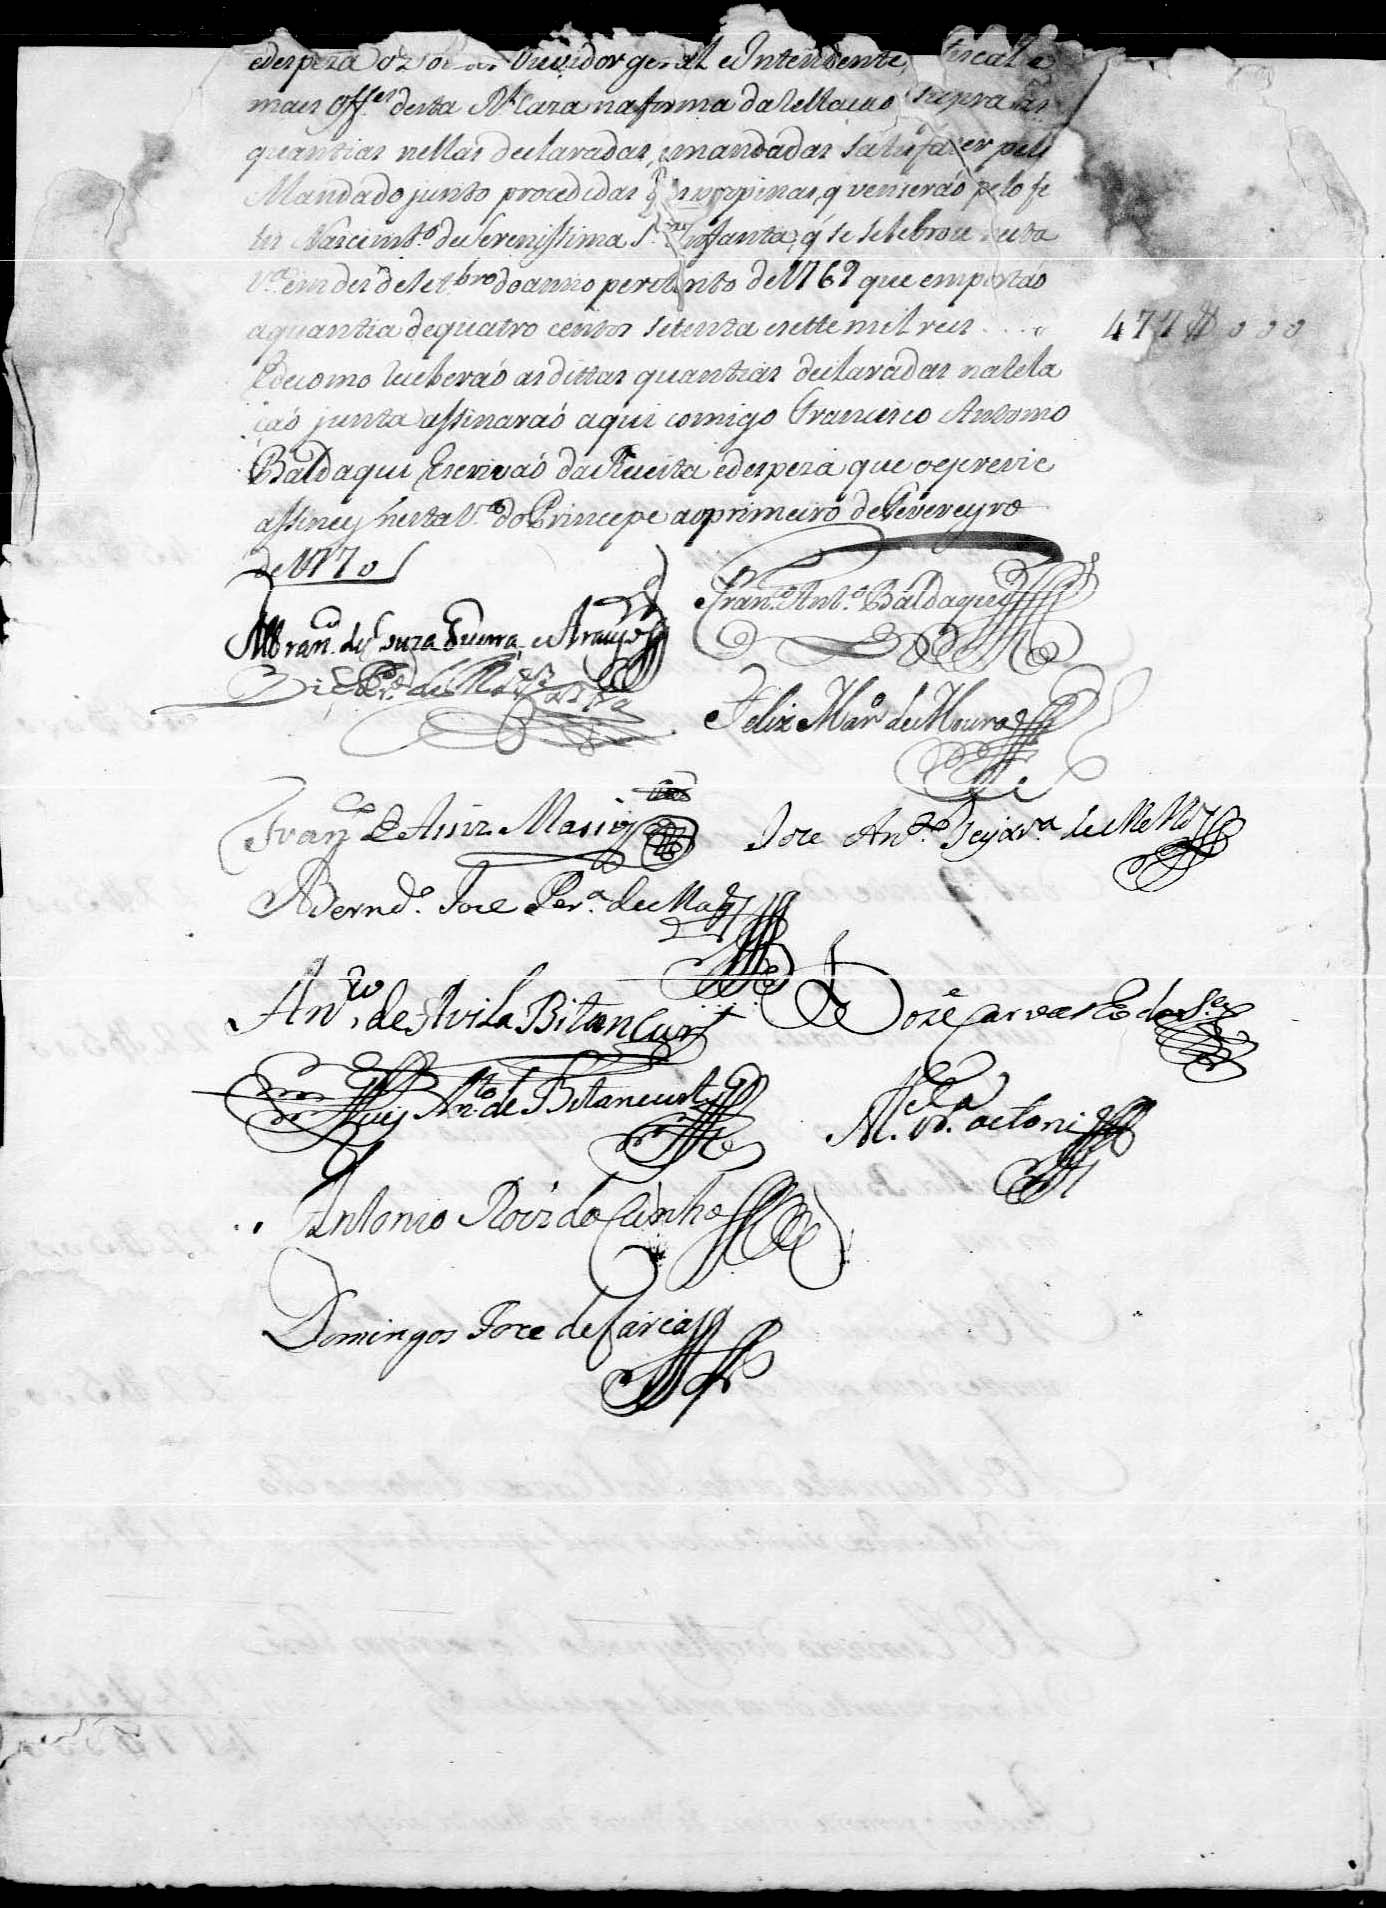 edespeza Ouvidor geral e Intendente, Fiscal e
mais Off.es desta R.l Caza na forma da Rellacao supra as
quantias nellas declaradas, emandadas satisfazer pello
Mandado junto procedidas propinas, q venserão pelo fe
lis Nascimt.o da Serenissima S.ra Infanta, q se selebrou nesta
V.a em des de Setbro do anno perterito de 1769 que emportão
aquantia dequatro centos setenta esette mil reis . . . . 477$000
Edecomo receberaó as dittas quantias declaradas na Rela
çaó junta assinaraó aqui comigo Francisco Antonio
Baldaqui Escrivaó da Receita edespeza que o escrevi e
assiney nesta V.a do Principe ao primeiro de Fevereyro
de 1770
Fran.co Ant.o Baldaque
M Fran.co de Souza Guerra e Araujo
Felix Mar. de Moura
Fran.co de Assiz
Joze An.to de Mello
Bernd.o Joze Per.a de
An.to de Avila Bitancurt
Joze Carvalho da S.a
Luis An.to de Bitancurt
Antonio Roiz da Cunha
Domingos Joze de Carcia